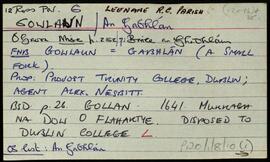 12 Ross Par. 6 LEENANE R.C. PARISH
GOWLAUN / An Gabhlán
Ó Gaora Mise p. 252,7.
FNB GOWLAUN = GABHLÁN (A SMALL
FORK).
PROP: PROVOST TRINITY COLLEGE, DUBLIN;
AGENT ALEX. NESBITT.
BSD p. 26. GOLLAN. 1641 MURRAGH
NA DOE O FLAHARTYE. DISPOSED TO
DUBLIN COLLEGE L
OS list: An Gabhlán
P120/18/10